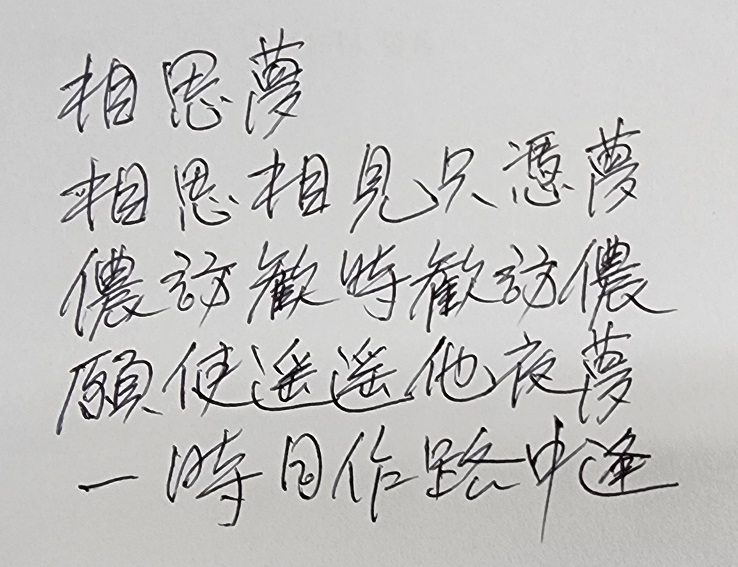 相思夢
相思相見只憑夢
儂訪歡時歡訪儂
願使遙遙他夜夢
一時同作路中逢